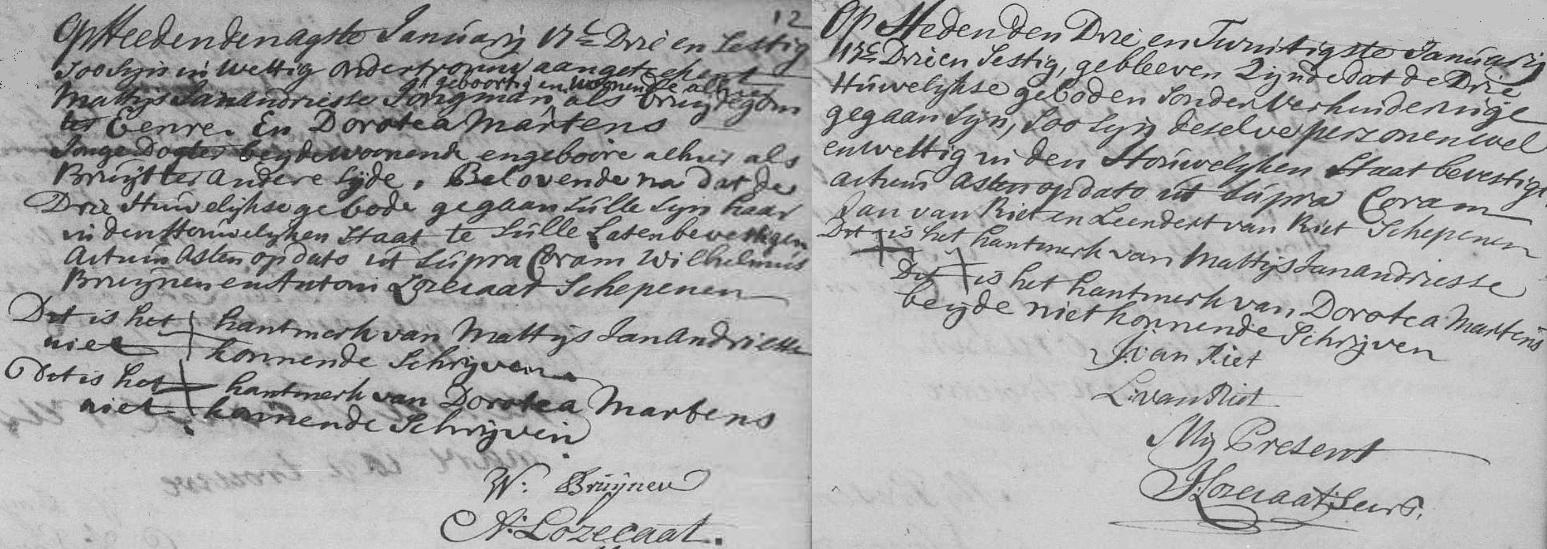 12
Op Heeden den agste Januarij 17.c Drie en Sestig
Soo Sijn in Wettig ondertrouw aangetekent
geboortig en woonende alhier
Mattijs Janandriesse Jongman, als Bruijdegom
ter Eenre. En Dorotea Martens
Jonge Dogter beijde woonende en geboore alhier als
Bruijt ter andere Sijde, Belovende na dat de
Drie Huwelijkse gebode gegaan Sulle Sijn haar
in den Houwelijken Staat te Sulle Laten bevestigen
Actum Asten op dato ut Supra Coram Wilhelmus
Bruijnen en Antoni Lozecaat Schepenen
Dit is het hantmerk van Mattijs Janandriesse
niet konnende Schrijven
Dit is het hantmerk van Dorotea Martens
niet konnende Schrijven
W. Bruijnen
A. Lozecaat.
Op Heden den Drie en Twintigste Januarij
17.c Drien Sestig, gebleeven Zijnde dat de Drie
Huwelijkse geboden Sonder Verhinderinge
gegaan Sijn, Soo Sijn deselve personen wel
en wettig in den Houwelijken Staat bevestigt
Actum Asten op dato ut Supra Coram
Jan van Riet en Leendert van Riet Schepenen
Dit is het hantmerk van Mattijs Janandriesse
Dit is het hantmerk van Dorotea Martens
beijde niet konnende Schrijven
J. van Riet
L. van Riet
Mij Present
J. Lozecaat; Secrs.